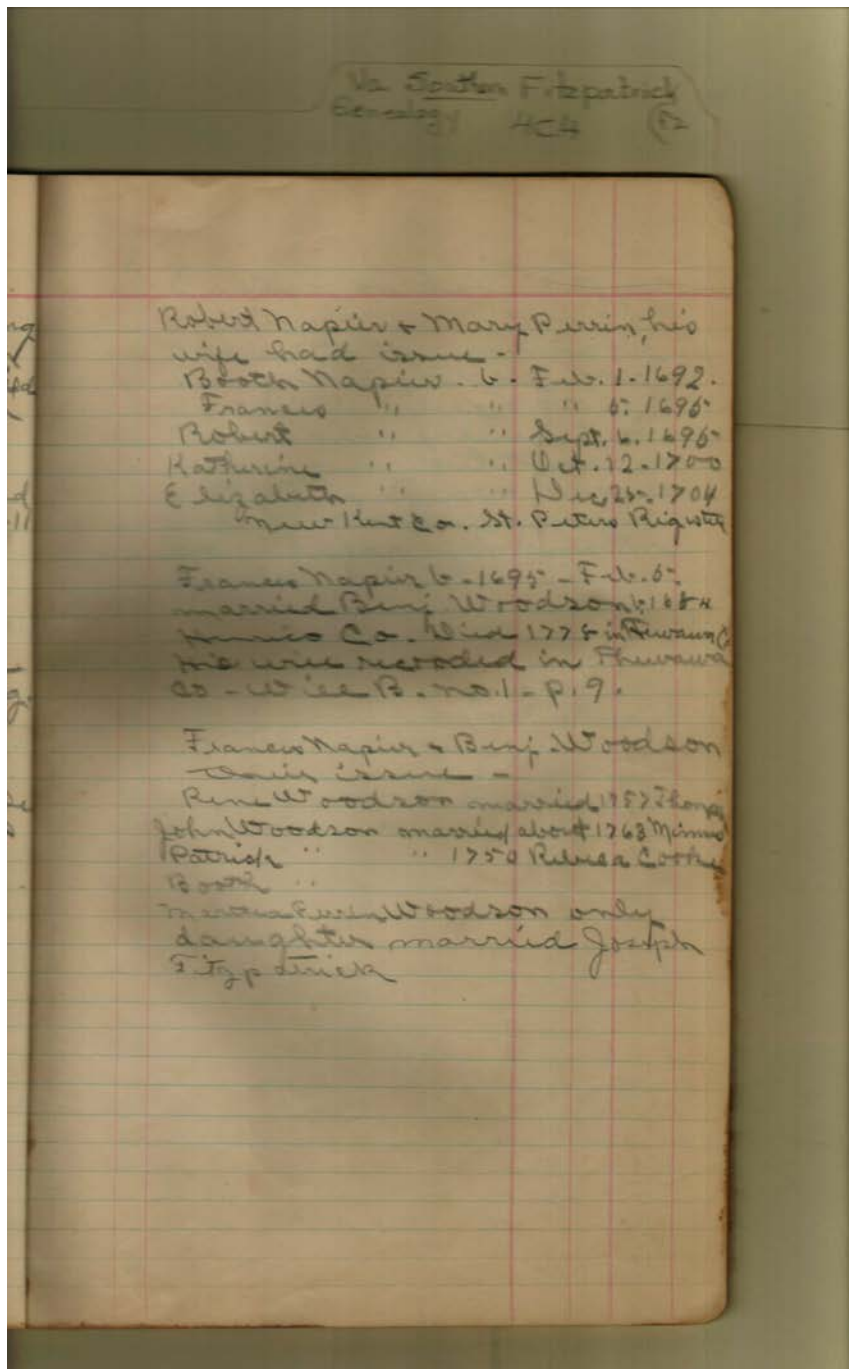 Va Southern Fitzpatrick
Genealogy 4C4
Robert Napier + Mary Perrin, his
wife had issue -
Booth Napier. b. Feb. 1. 1692.
Francis " " " 5. 1695
Robert " " Sept. 6. 1695
Katherine " " Oct. 12-1700
Elizabeth " " Dec. 25. 1704
New Kent Co. St. Peters Register
Francis Napier b-1695-Feb. 5.
married Benj. Woodson b.
Henrico Co. Died 1778 in
His will recorded in
Co - Will B. no. 1 - p. 9.
Francis Napier + Benj. Woodson
their issue -
Rene Woodson married 1757
John Woodson married about 1763
Patrick " " 1750 Rebecca
Booth "
Woodson only
daughter married Joseph
Fitzpatrick